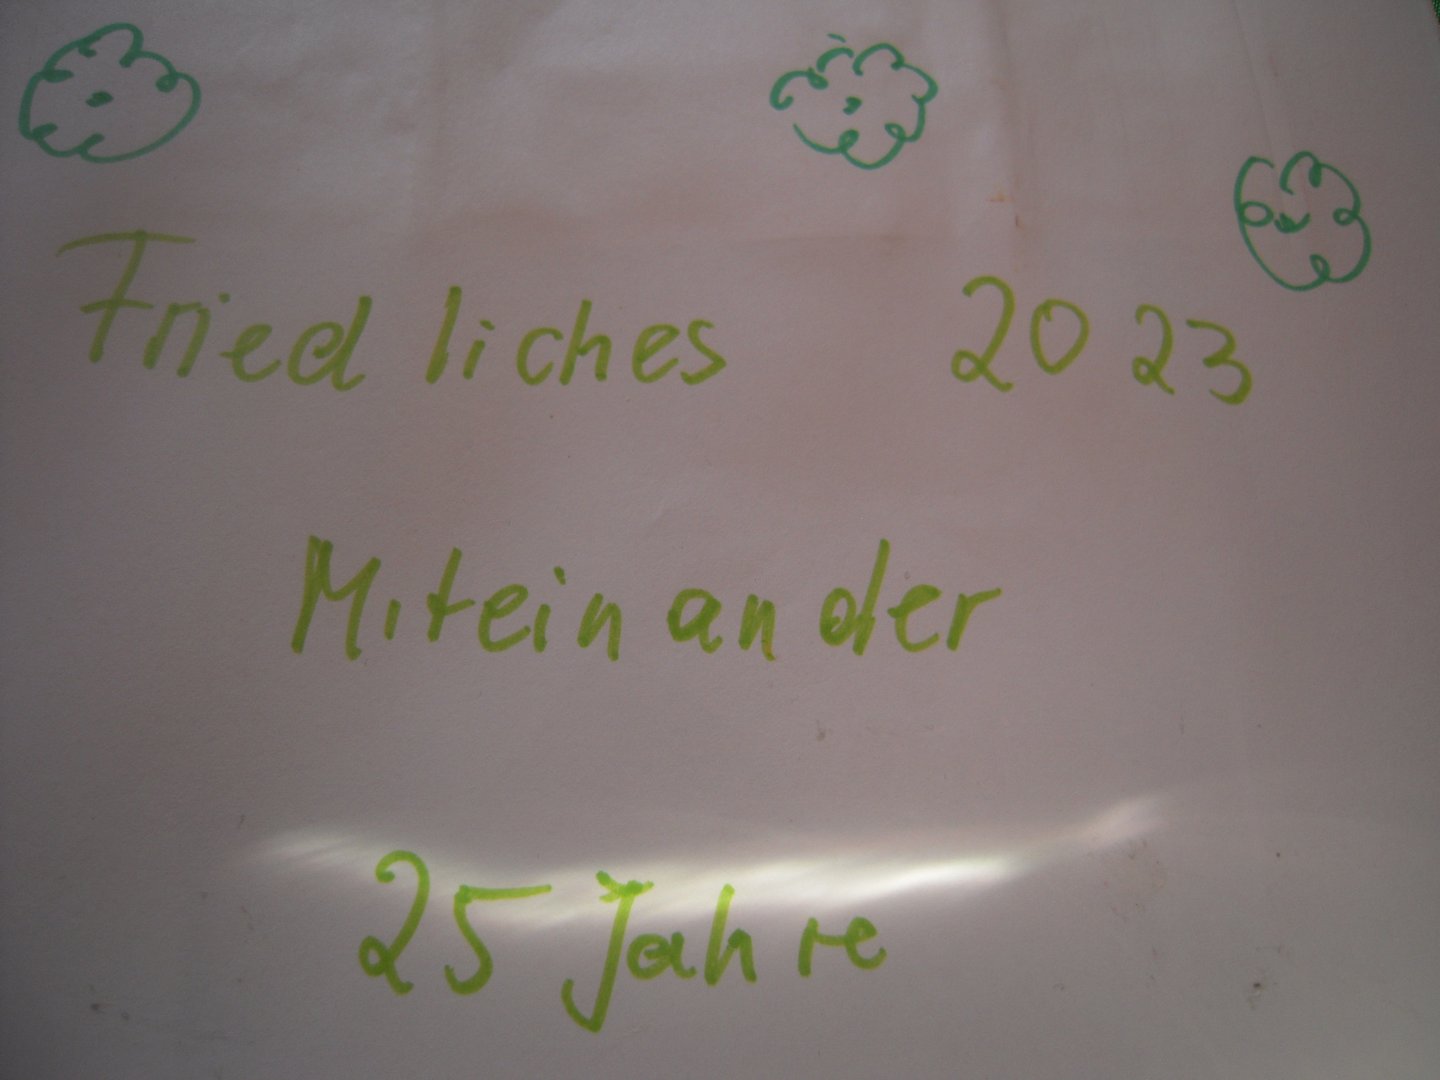 Friedliches 2023
Miteinander
25 Jahre